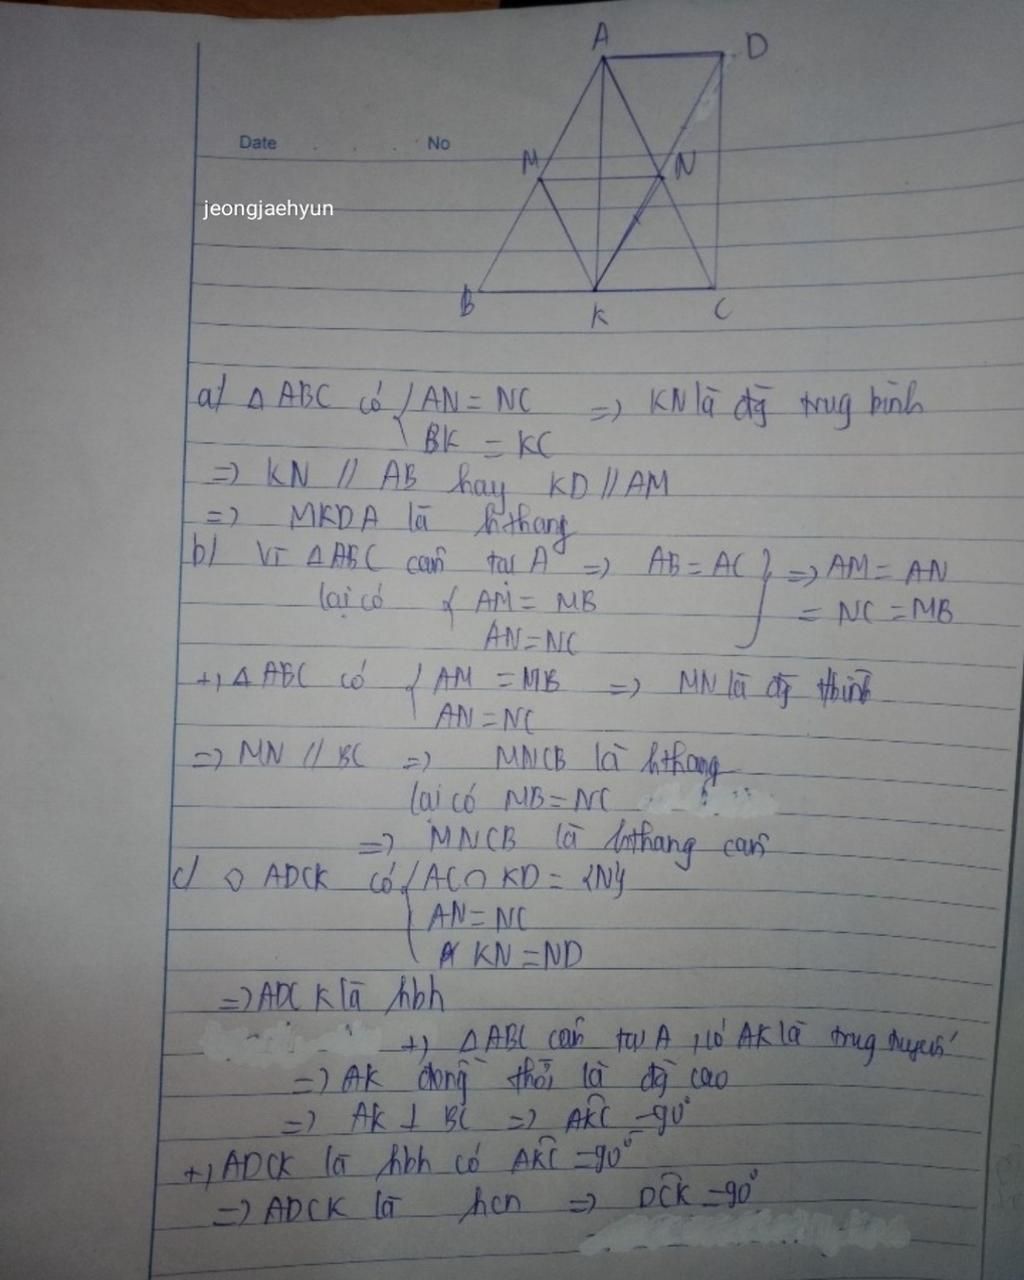 A D
Date No
M N
jeongjaehyun
B K C
a/ Δ ABC có { AN = NC => KN là đg trug bình
BK = KC
=> KN // AB hay KD // AM
=> MKDA là hthang
b/ Vì Δ ABC cân tại A => AB = AC } => AM = AN
lại có { AM = MB = NC = MB
AN = NC
+, Δ ABC có { AM = MB => MN là đg tbình
AN = NC
=> MN // BC => MNCB là hthang
lại có MB = NC
=> MNCB là hthang cân
c/ ◊ ADCK có { AC ∩ KD = {N}
AN = NC
KN = ND
=> ADCK là hbh
+, Δ ABC cân tại A, có AK là trug tuyến
=> AK đồng thời là đg cao
=> AK ⊥ BC => AK̂C = 90°
+, ADCK là hbh có AK̂C = 90°
=> ADCK là hcn => DĈK = 90°